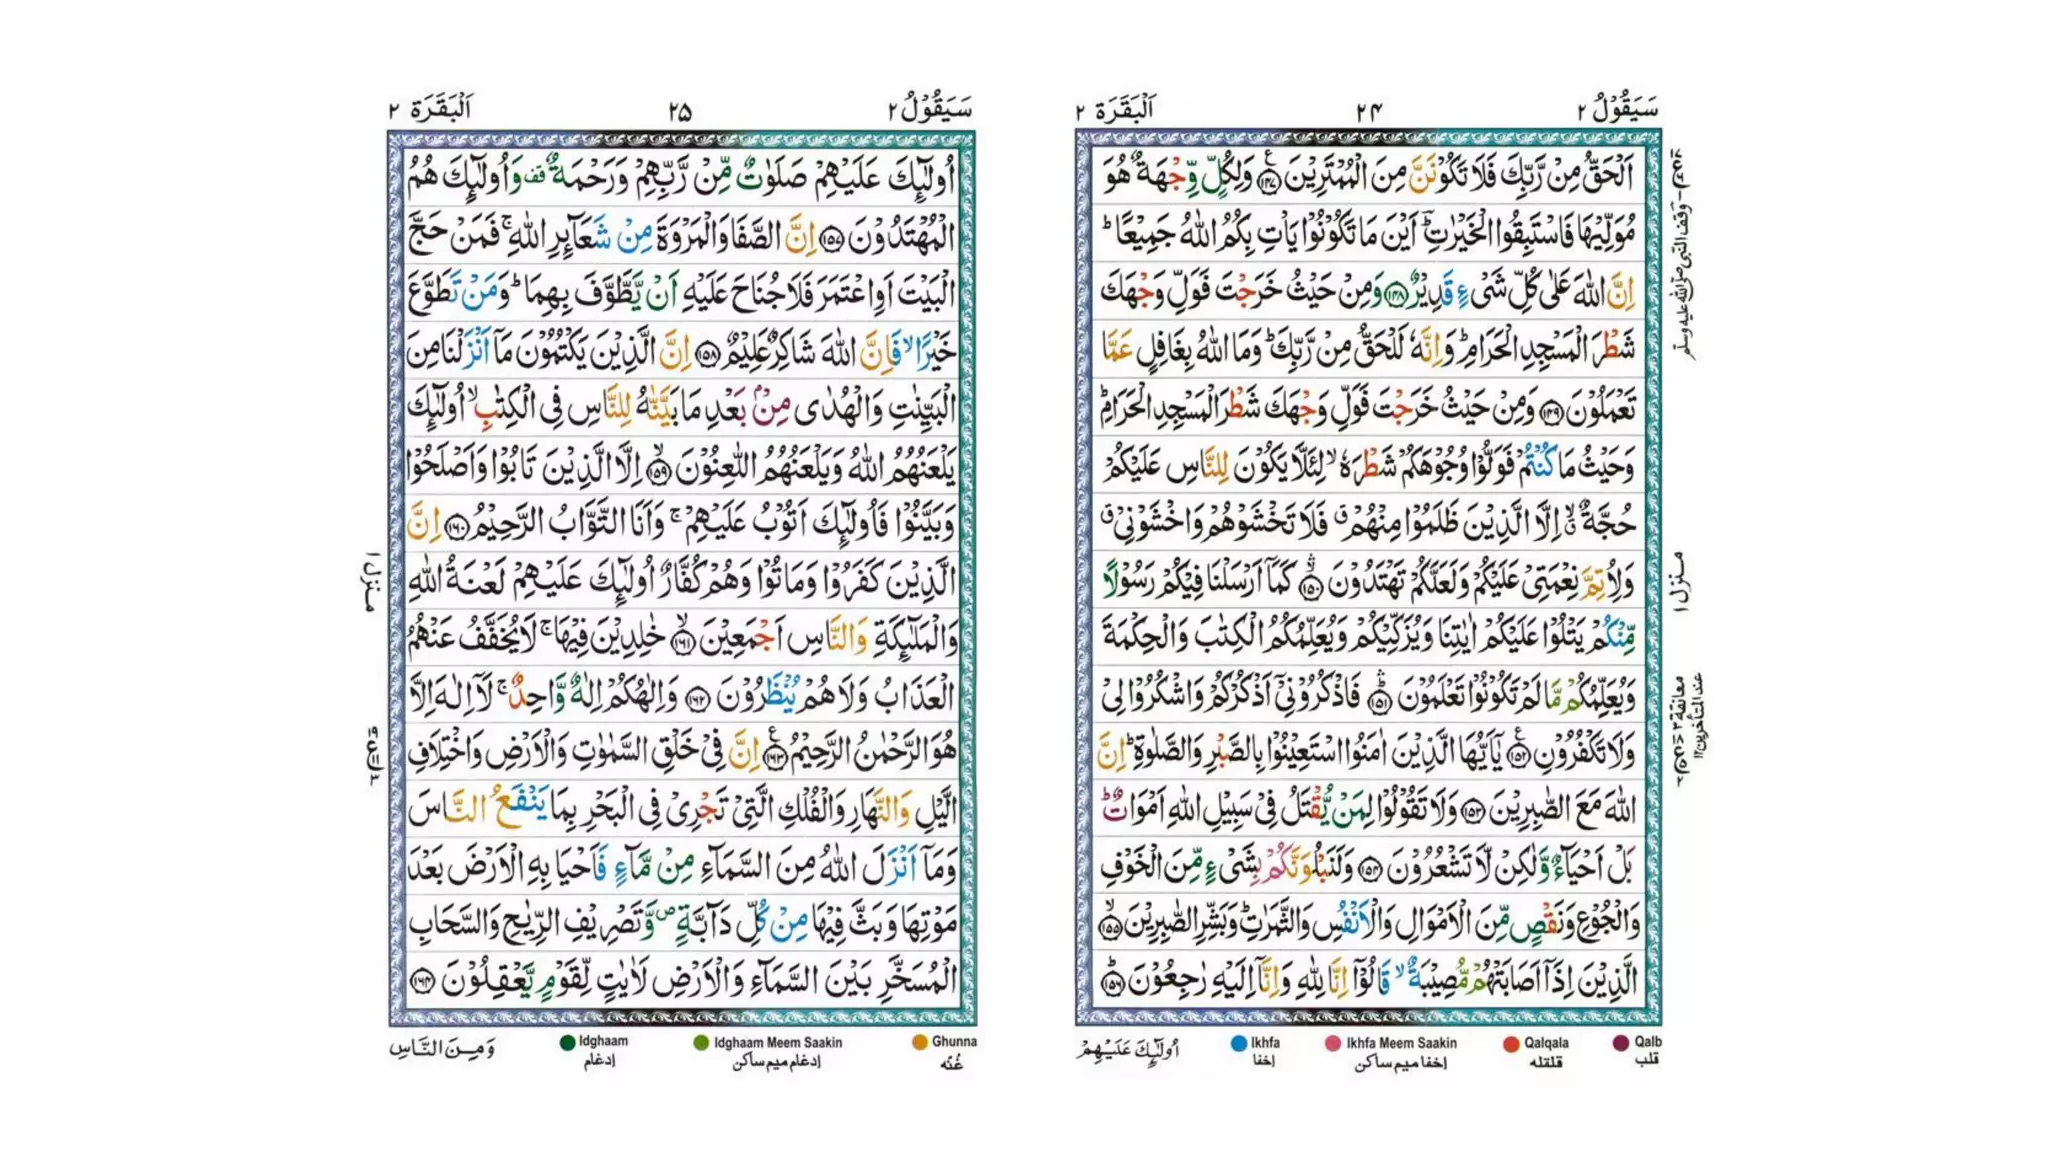 سَيَقُوْلُ ٢ ٢٤ اَلْبَقَرَة ٢
اَلْحَقُّ مِنْ رَّبِّكَ فَلَا تَكُوْنَنَّ مِنَ الْمُمْتَرِيْنَ ۧ﴿١٤٧﴾ وَلِكُلٍّ وِّجْهَةٌ هُوَ
مُوَلِّيْهَا فَاسْتَبِقُوا الْخَيْرٰتِ ؔ اَيْنَ مَا تَكُوْنُوْا يَاْتِ بِكُمُ اللّٰهُ جَمِيْعًا ؕ
اِنَّ اللّٰهَ عَلٰى كُلِّ شَىْءٍ قَدِيْرٌ ﴿١٤٨﴾ وَمِنْ حَيْثُ خَرَجْتَ فَوَلِّ وَجْهَكَ
شَطْرَ الْمَسْجِدِ الْحَرَامِ ؕ وَاِنَّهٗ لَلْحَقُّ مِنْ رَّبِّكَ ؕ وَمَا اللّٰهُ بِغَافِلٍ عَمَّا
تَعْمَلُوْنَ ﴿١٤٩﴾ وَمِنْ حَيْثُ خَرَجْتَ فَوَلِّ وَجْهَكَ شَطْرَ الْمَسْجِدِ الْحَرَامِ ؕ
وَحَيْثُ مَا كُنْتُمْ فَوَلُّوْا وُجُوْهَكُمْ شَطْرَهٗ ۙ لِئَلَّا يَكُوْنَ لِلنَّاسِ عَلَيْكُمْ
حُجَّةٌ ۙ اِلَّا الَّذِيْنَ ظَلَمُوْا مِنْهُمْ ۗ فَلَا تَخْشَوْهُمْ وَاخْشَوْنِيْ ۗ
وَلِاُتِمَّ نِعْمَتِيْ عَلَيْكُمْ وَلَعَلَّكُمْ تَهْتَدُوْنَ ۛ﴿١٥٠﴾ كَمَآ اَرْسَلْنَا فِيْكُمْ رَسُوْلًا
مِّنْكُمْ يَتْلُوْا عَلَيْكُمْ اٰيٰتِنَا وَيُزَكِّيْكُمْ وَيُعَلِّمُكُمُ الْكِتٰبَ وَالْحِكْمَةَ
وَيُعَلِّمُكُمْ مَّا لَمْ تَكُوْنُوْا تَعْلَمُوْنَ ۛ﴿١٥١﴾ فَاذْكُرُوْنِيْٓ اَذْكُرْكُمْ وَاشْكُرُوْا لِيْ
وَلَا تَكْفُرُوْنِ ۧ﴿١٥٢﴾ يٰٓاَيُّهَا الَّذِيْنَ اٰمَنُوا اسْتَعِيْنُوْا بِالصَّبْرِ وَالصَّلٰوةِ ؕ اِنَّ
اللّٰهَ مَعَ الصّٰبِرِيْنَ ﴿١٥٣﴾ وَلَا تَقُوْلُوْا لِمَنْ يُّقْتَلُ فِيْ سَبِيْلِ اللّٰهِ اَمْوَاتٌ ؕ
بَلْ اَحْيَآءٌ وَّلٰكِنْ لَّا تَشْعُرُوْنَ ﴿١٥٤﴾ وَلَنَبْلُوَنَّكُمْ بِشَىْءٍ مِّنَ الْخَوْفِ
وَالْجُوْعِ وَنَقْصٍ مِّنَ الْاَمْوَالِ وَالْاَنْفُسِ وَالثَّمَرٰتِ ؕ وَبَشِّرِ الصّٰبِرِيْنَ ۙ﴿١٥٥﴾
الَّذِيْنَ اِذَآ اَصَابَتْهُمْ مُّصِيْبَةٌ ۙ قَالُوْٓا اِنَّا لِلّٰهِ وَاِنَّآ اِلَيْهِ رٰجِعُوْنَ ؕ﴿١٥٦﴾
وقف النبي صلى الله عليه وسلم
منزل ١
معانقة ٢
عند المتأخرين ١٢
Qalb Qalqala Ikhfa Meem Saakin Ikhfa
قلب قلقله إخفا ميم ساكن إخفا
اُولٰٓئِكَ عَلَيْهِمْ
سَيَقُوْلُ ٢ ٢٥ اَلْبَقَرَة ٢
اُولٰٓئِكَ عَلَيْهِمْ صَلَوٰتٌ مِّنْ رَّبِّهِمْ وَرَحْمَةٌ ۟قف وَاُولٰٓئِكَ هُمُ
الْمُهْتَدُوْنَ ﴿١٥٧﴾ اِنَّ الصَّفَا وَالْمَرْوَةَ مِنْ شَعَآئِرِ اللّٰهِ ۚ فَمَنْ حَجَّ
الْبَيْتَ اَوِ اعْتَمَرَ فَلَا جُنَاحَ عَلَيْهِ اَنْ يَّطَّوَّفَ بِهِمَا ؕ وَمَنْ تَطَوَّعَ
خَيْرًا ۙ فَاِنَّ اللّٰهَ شَاكِرٌ عَلِيْمٌ ﴿١٥٨﴾ اِنَّ الَّذِيْنَ يَكْتُمُوْنَ مَآ اَنْزَلْنَا مِنَ
الْبَيِّنٰتِ وَالْهُدٰى مِنْۢ بَعْدِ مَا بَيَّنّٰهُ لِلنَّاسِ فِى الْكِتٰبِ ۙ اُولٰٓئِكَ
يَلْعَنُهُمُ اللّٰهُ وَيَلْعَنُهُمُ اللّٰعِنُوْنَ ۙ﴿١٥٩﴾ اِلَّا الَّذِيْنَ تَابُوْا وَاَصْلَحُوْا
وَبَيَّنُوْا فَاُولٰٓئِكَ اَتُوْبُ عَلَيْهِمْ ۚ وَاَنَا التَّوَّابُ الرَّحِيْمُ ﴿١٦٠﴾ اِنَّ
الَّذِيْنَ كَفَرُوْا وَمَاتُوْا وَهُمْ كُفَّارٌ اُولٰٓئِكَ عَلَيْهِمْ لَعْنَةُ اللّٰهِ
وَالْمَلٰٓئِكَةِ وَالنَّاسِ اَجْمَعِيْنَ ۙ﴿١٦١﴾ خٰلِدِيْنَ فِيْهَا ۚ لَا يُخَفَّفُ عَنْهُمُ
الْعَذَابُ وَلَا هُمْ يُنْظَرُوْنَ ﴿١٦٢﴾ وَاِلٰهُكُمْ اِلٰهٌ وَّاحِدٌ ۚ لَآ اِلٰهَ اِلَّا
هُوَ الرَّحْمٰنُ الرَّحِيْمُ ۧ﴿١٦٣﴾ اِنَّ فِيْ خَلْقِ السَّمٰوٰتِ وَالْاَرْضِ وَاخْتِلَافِ
الَّيْلِ وَالنَّهَارِ وَالْفُلْكِ الَّتِيْ تَجْرِيْ فِى الْبَحْرِ بِمَا يَنْفَعُ النَّاسَ
وَمَآ اَنْزَلَ اللّٰهُ مِنَ السَّمَآءِ مِنْ مَّآءٍ فَاَحْيَا بِهِ الْاَرْضَ بَعْدَ
مَوْتِهَا وَبَثَّ فِيْهَا مِنْ كُلِّ دَآبَّةٍ ۪ وَّتَصْرِيْفِ الرِّيٰحِ وَالسَّحَابِ
الْمُسَخَّرِ بَيْنَ السَّمَآءِ وَالْاَرْضِ لَاٰيٰتٍ لِّقَوْمٍ يَّعْقِلُوْنَ ﴿١٦٤﴾
منزل ١
Ghunna Idghaam Meem Saakin Idghaam
غُنّه إدغام ميم ساكن إدغام
وَمِنَ النَّاسِ